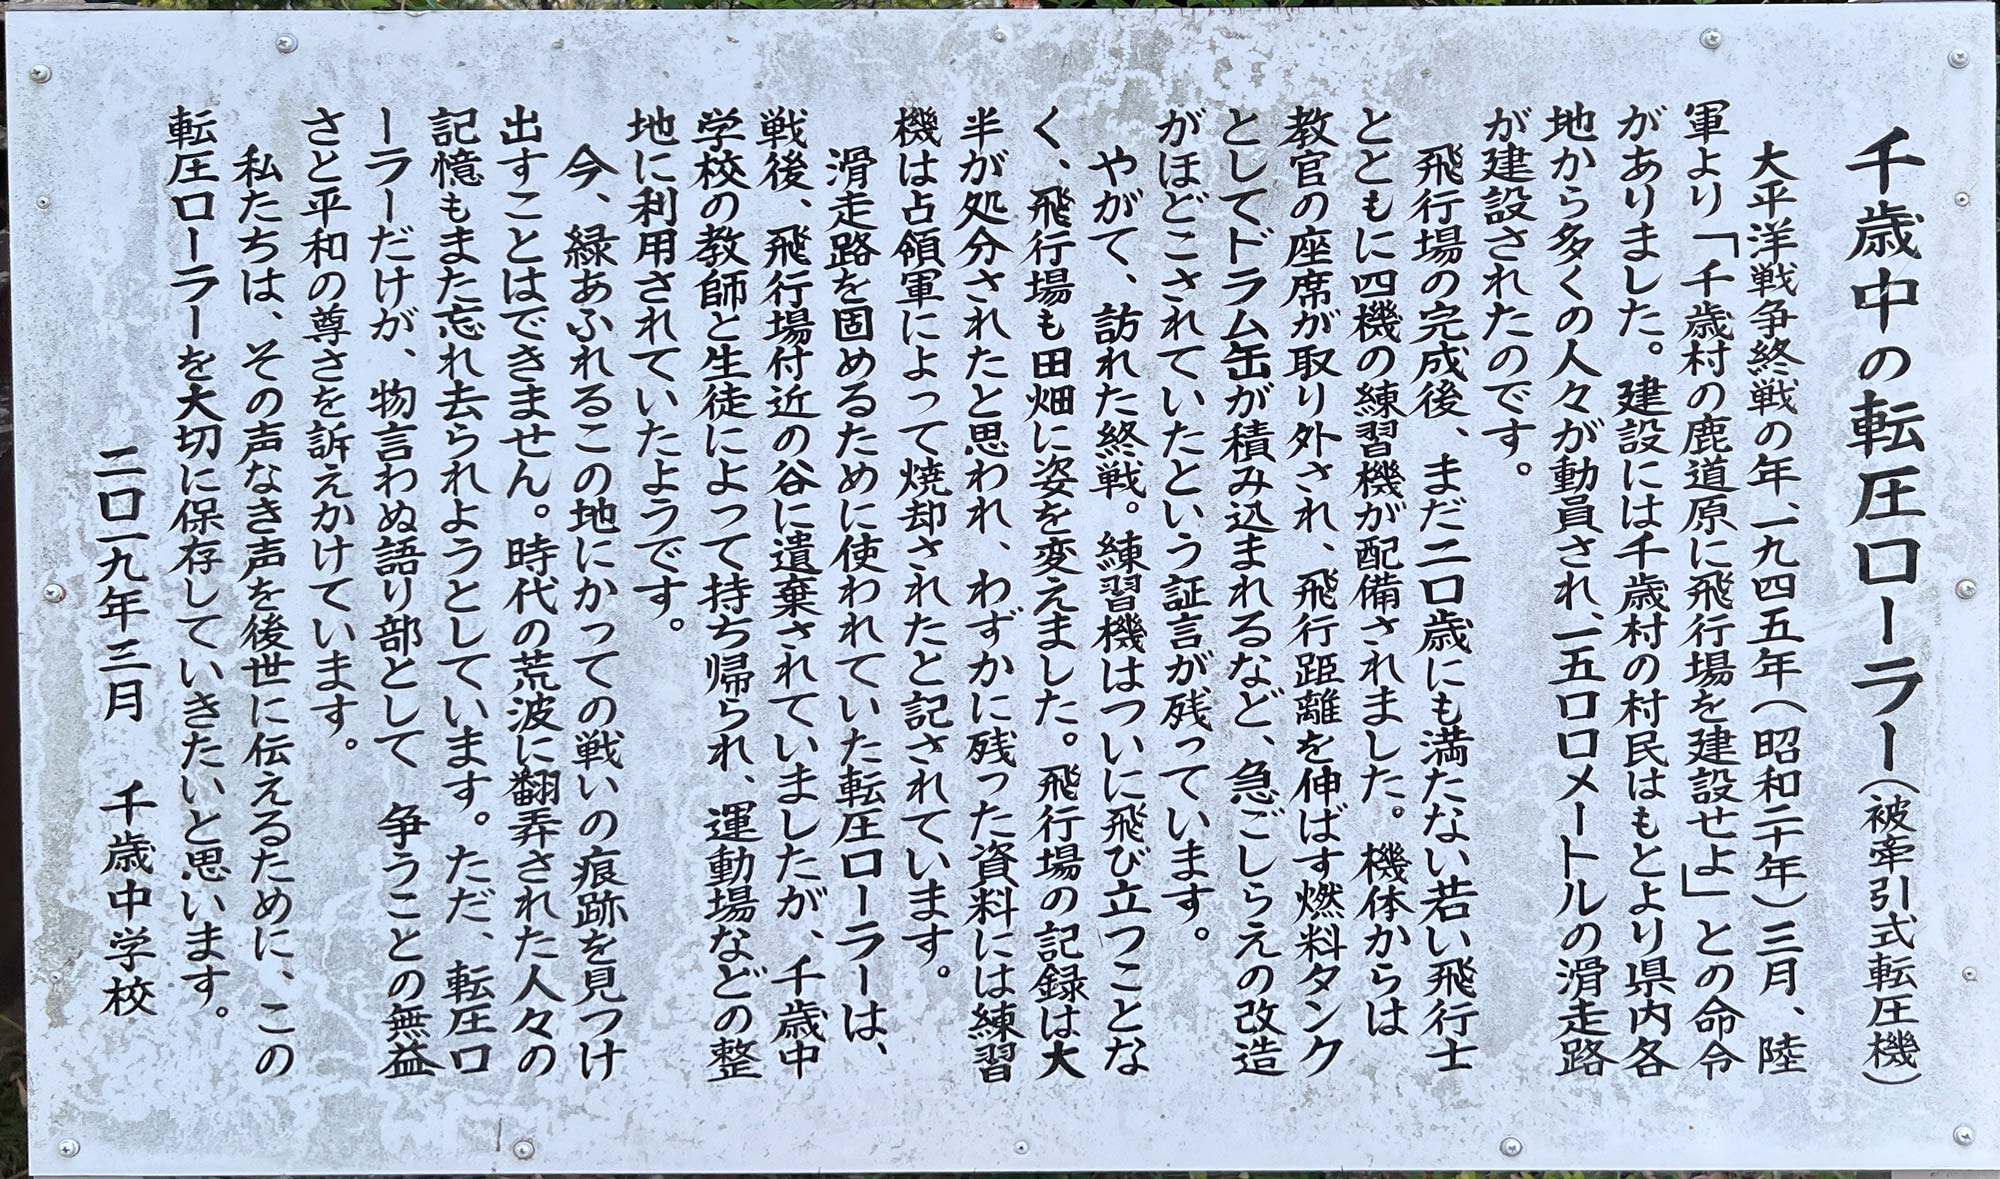 千歳中の転圧ローラー（被牽引式転圧機）
大平洋戦争終戦の年、一九四五年（昭和二十年）三月、陸
軍より「千歳村の鹿道原に飛行場を建設せよ」との命令
がありました。建設には千歳村の村民はもとより県内各
地から多くの人々が動員され、一五〇〇メートルの滑走路
が建設されたのです。
飛行場の完成後、まだ二〇歳にも満たない若い飛行士
とともに四機の練習機が配備されました。機体からは
教官の座席が取り外され、飛行距離を伸ばす燃料タンク
としてドラム缶が積み込まれるなど、急ごしらえの改造
がほどこされていたという証言が残っています。
やがて、訪れた終戦。練習機はついに飛び立つことな
く、飛行場も田畑に姿を変えました。飛行場の記録は大
半が処分されたと思われ、わずかに残った資料には練習
機は占領軍によって焼却されたと記されています。
滑走路を固めるために使われていた転圧ローラーは、
戦後、飛行場付近の谷に遺棄されていましたが、千歳中
学校の教師と生徒によって持ち帰られ、運動場などの整
地に利用されていたようです。
今、緑あふれるこの地にかつての戦いの痕跡を見つけ
出すことはできません。時代の荒波に翻弄された人々の
記憶もまた忘れ去られようとしています。ただ、転圧ロ
ーラーだけが、物言わぬ語り部として 争うことの無益
さと平和の尊さを訴えかけています。
私たちは、その声なき声を後世に伝えるために、この
転圧ローラーを大切に保存していきたいと思います。
二〇一九年三月　千歳中学校